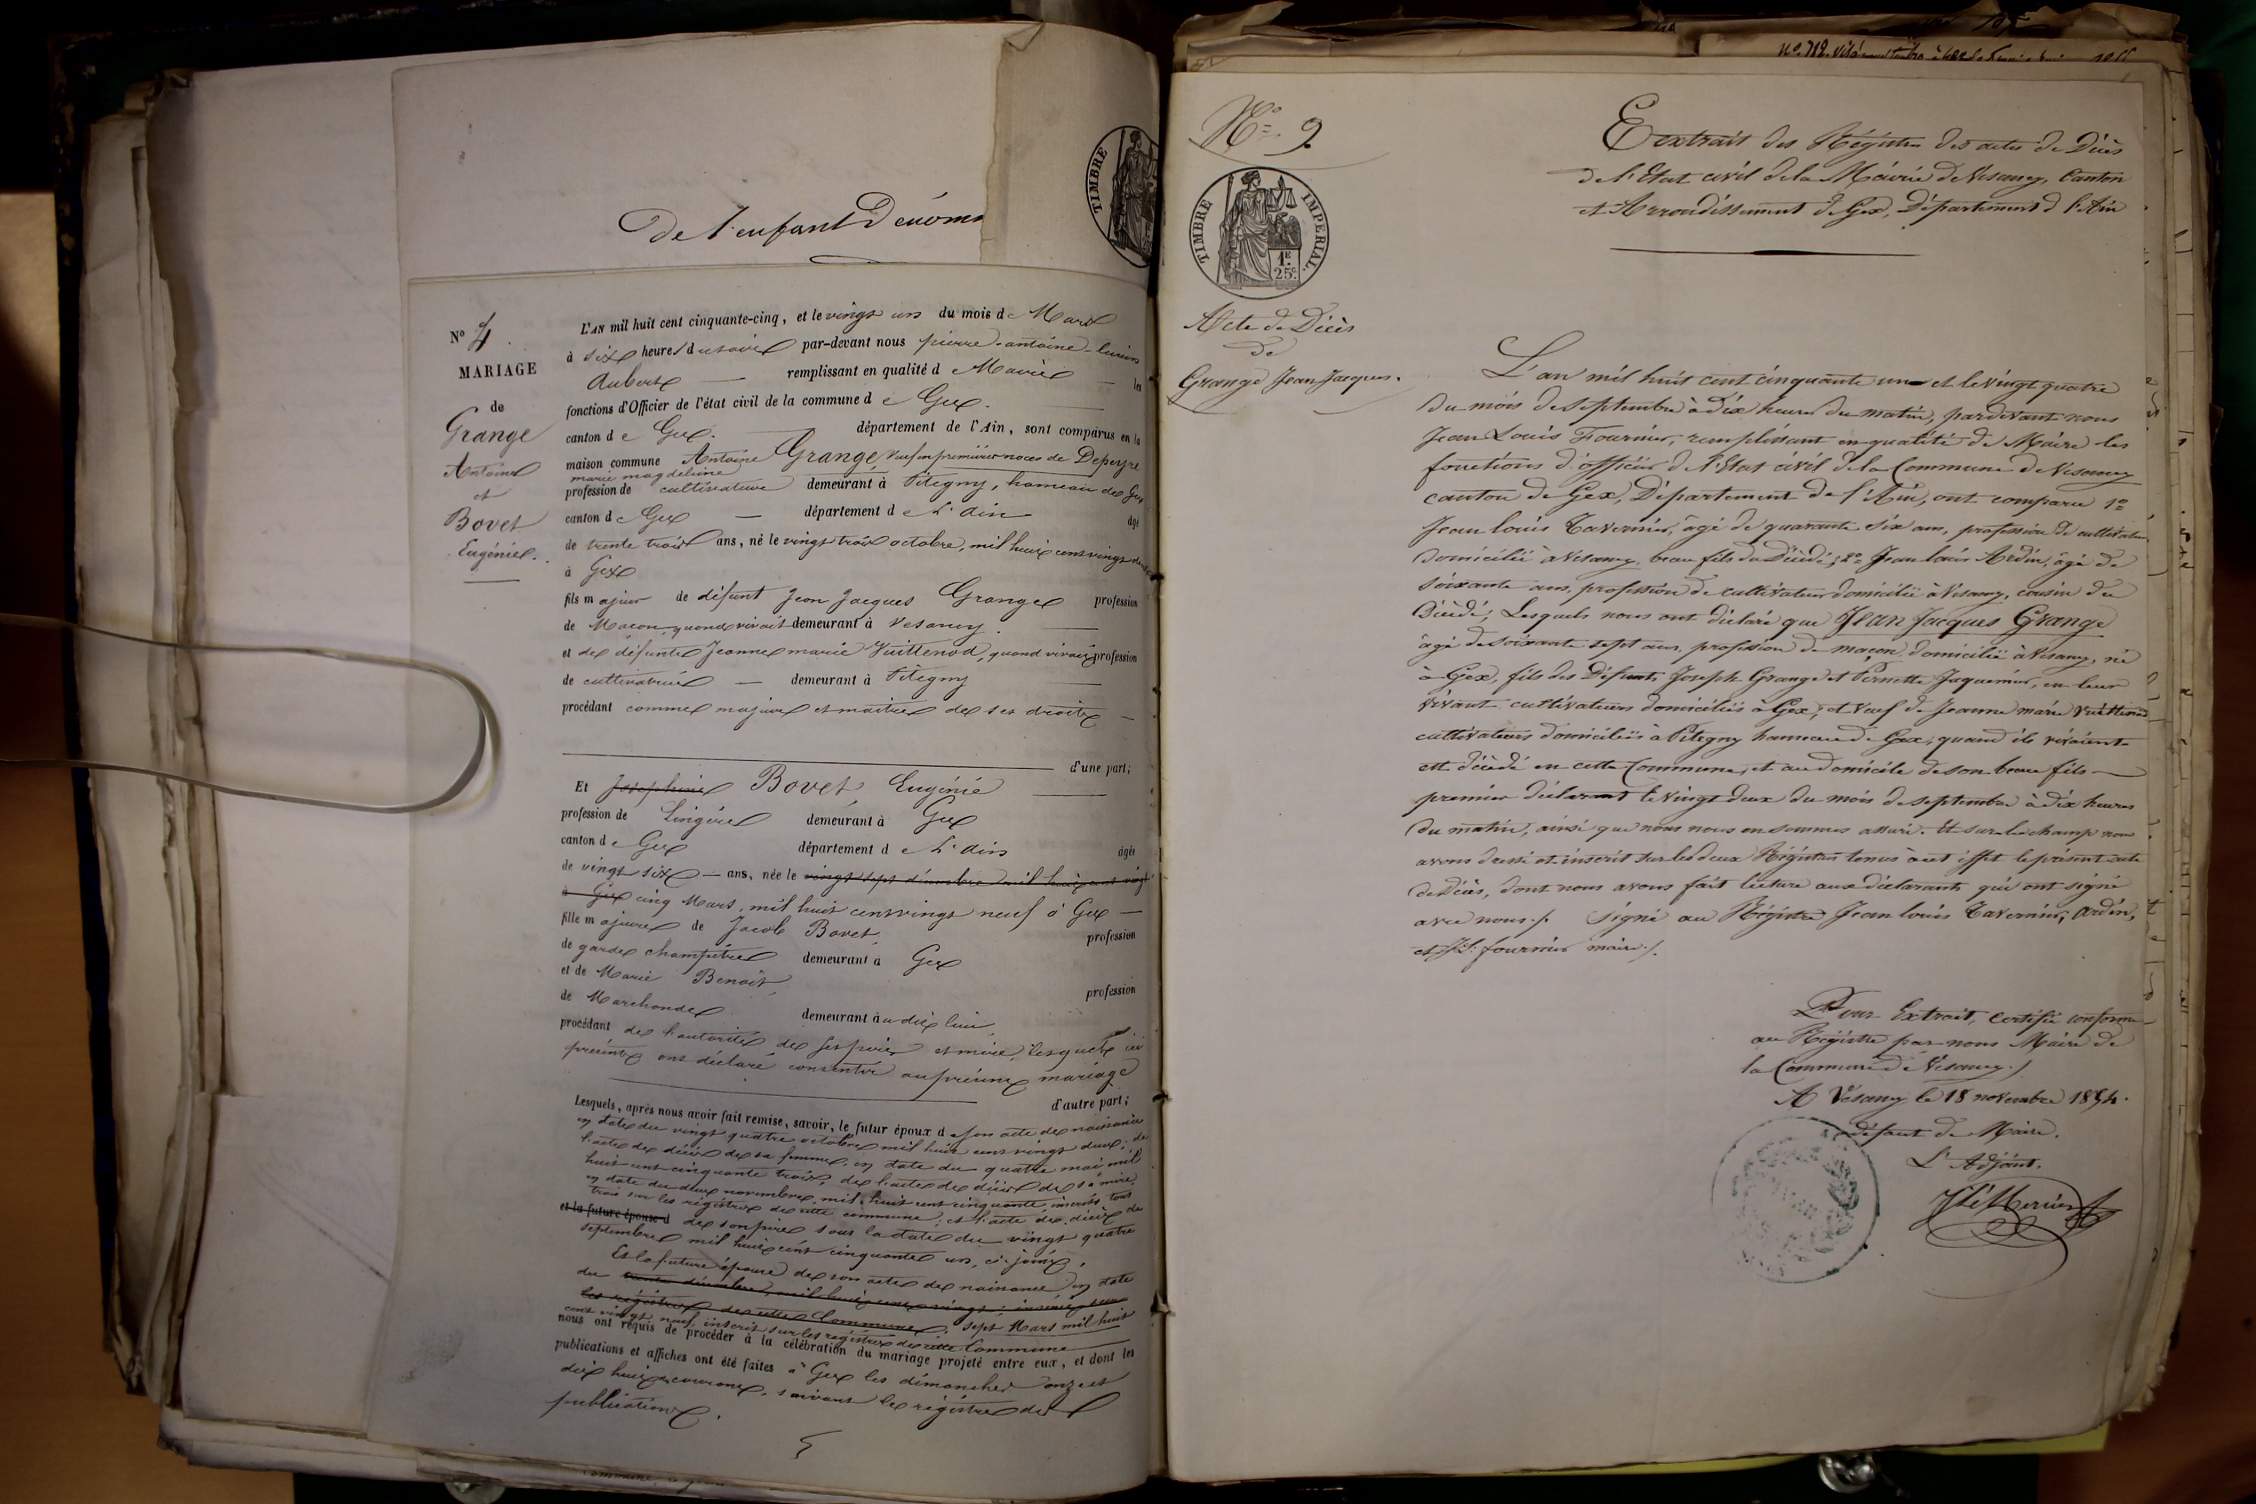 De l'enfant Dénom
TIMBRE
N° 4.
MARIAGE
de
Grange
Antoine
et
Bovet
Eugénie.
L'AN mil huit cent cinquante-cinq, et le vingt un du mois de Mars
à six heures du soir par-devant nous pierre-antoine-lucien
Aubert — remplissant en qualité de Maire — les
fonctions d'Officier de l'état civil de la commune de Gex.
canton de Gex. département de l'Ain, sont comparus en la
maison commune Antoine Grange, veuf en premières noces de Depeyre
marie magdeleine
profession de cultivateur demeurant à Pitegny, hameau de Gex
canton de Gex — département de L'ain âgé
de trente trois ans, né le vingt trois octobre, mil huit cent vingt deux
à Gex
fils majeur de défunt Jean Jacques Grange profession
de Maçon, quand vivait demeurant à Vesancy.
et de défunte Jeanne marie Vuittenod, quand vivait profession
de cultivatrice — demeurant à Pitegny
procédant comme majeur et maître de ses droits —
d'une part;
Et Josephine Bovet, Eugénie
profession de Lingère demeurant à Gex
canton de Gex département de L'ain âgée
de vingt six — ans, née le vingt sept décembre mil huit cent vingt
à Gex cinq Mars, mil huit cent vingt neuf à Gex —
fille majeure de Jacob Bovet, profession
de garde champêtre demeurant à Gex
et de Marie Benoit, profession
de Marchande demeurant au dit lieu,
procédant de l'autorité de ses père et mère, lesquels ici
présents ont déclaré consentir au présent mariage
d'autre part;
Lesquels, après nous avoir fait remise, savoir, le futur époux de son acte de naissance
en date du vingt quatre octobre mil huit cent vingt deux; de
l'acte de décès de sa femme, en date du quatre mai mil
huit cent cinquante trois, de l'acte de décès de sa mère,
en date du deux novembre, mil huit cent cinquante, inscrits tous
trois sur les registres de cette commune; et l'acte de décès
et la future épouse d de son père sous la date du vingt quatre
septembre mil huit cent cinquante un, ci-joint,
Et la future épouse de son acte de naissance en date
du décembre, mil huit cent vingt; inscrit sur
les registres de cette Commune, sept Mars mil huit
cent vingt neuf, inscrit sur les registres de cette Commune
nous ont requis de procéder à la célébration du mariage projeté entre eux, et dont les
publications et affiches ont été faites à Gex les dimanches onze et
dix huit courant, suivant les registres des
publications.
N° 9.
TIMBRE IMPERIAL.
1F. 25c.
Acte de Décès
de
Grange Jean Jacques.
Extrait des Régistres des actes de Décès
de l'Etat civil de la Mairie de Vesancy, Canton
et Arrondissement de Gex, Département de l'Ain
L'an mil huit cent cinquante un et le vingt quatre
du mois de septembre à dix heures du matin, pardevant nous
Jean Louis Fournier, remplissant en qualité de Maire les
fonctions d'officier de l'Etat civil de la Commune de Vesancy
canton de Gex, Département de l'Ain, ont comparu 1°
Jean louis Tavernier, âgé de quarante six ans, profession de cultivateur
domicilié à Vesancy, beau fils du Décédé; 2° Jean louis Ardin, âgé de
soixante ans, profession de cultivateur domicilié à Vesancy, cousin du
Décédé; Lesquels nous ont déclaré que Jean Jacques Grange
âgé de soixante sept ans, profession de maçon, domicilié à Vesancy, né
à Gex, fils des Défunts Joseph Grange et Pernette Jaquemier, en leur
vivant cultivateurs domiciliés à Gex, et veuf de Jeanne marie Vuittenod
cultivateurs domiciliés à Pitegny hammeau de Gex, quand ils vivaient
est décédé en cette Commune, et au domicile de son beau fils —
premier déclarant le vingt deux du mois de septembre à dix heures
du matin, ainsi que nous nous en sommes assuré. Et sur le champ nous
avons dressé et inscrit sur les deux Régistres tenus à cet effet le présent acte
de Décès, dont nous avons fait lecture aux déclarants qui ont signé
avec nous./. Signé au Régistre Jean louis Tavernier, Ardin,
et J.L. fournier maire./.
Pour Extrait, certifié conforme
au Régistre par nous Maire de
la Commune de Vesancy./.
A Vésancy le 18 novembre 1854.
à défaut de Maire.
L'Adjoint.